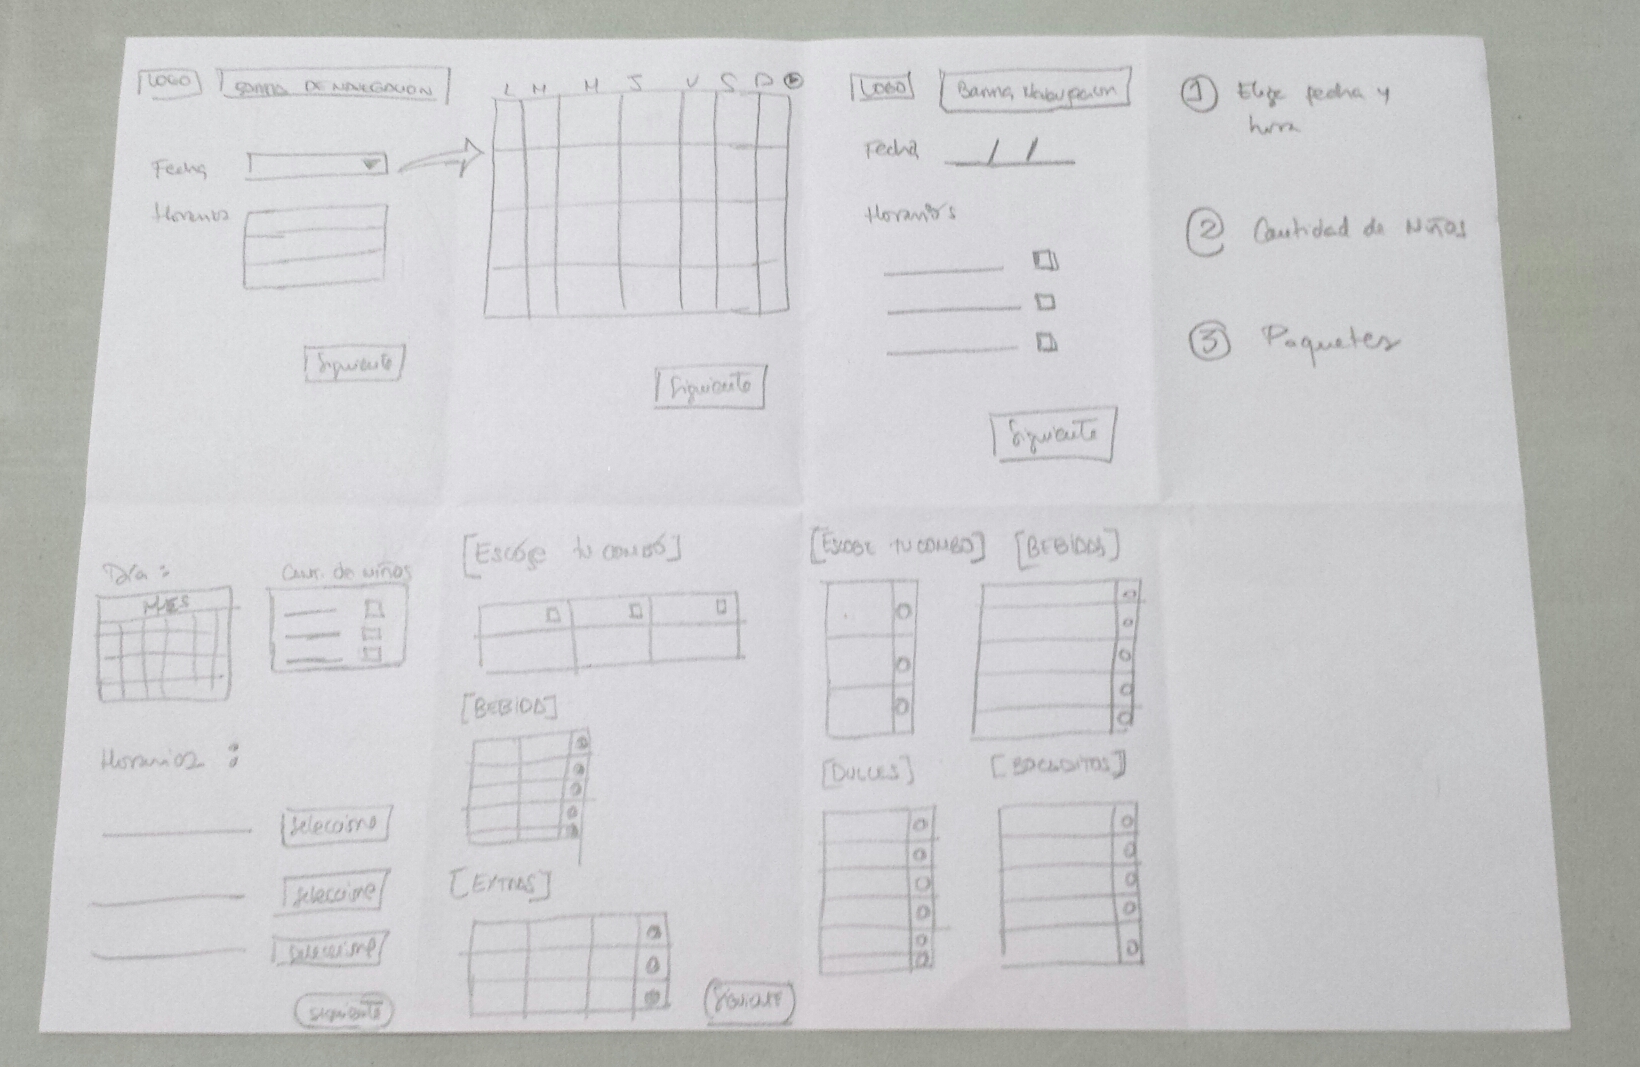 LOGO
BARRA DE NAVEGACION
Fecha
Horarios
Siguiente
L M M J V S D
Siguiente
LOGO
Barra Navegacion
Fecha / /
Horarios
Siguiente
1 Elige fecha y
hora
2 Cantidad de Niños
3 Paquetes
Día :
MES
Cant. de niños
Horarios :
Seleccione
Seleccione
Seleccione
Siguiente
[Escoge tu combo]
[BEBIDA]
[EXTRAS]
Siguiente
[ESCOGE TU COMBO]
[BEBIDAS]
[DULCES]
[BOCADITOS]